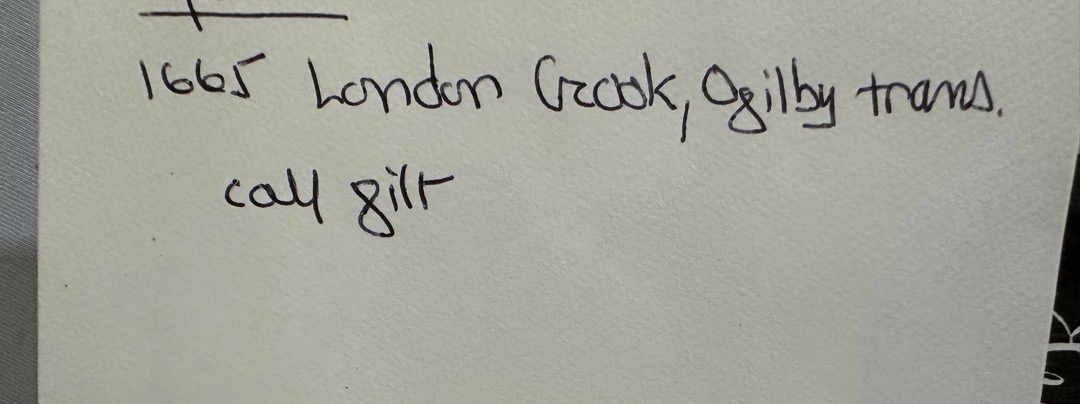 1665 London Crook, Ogilby trans.
calf gilt